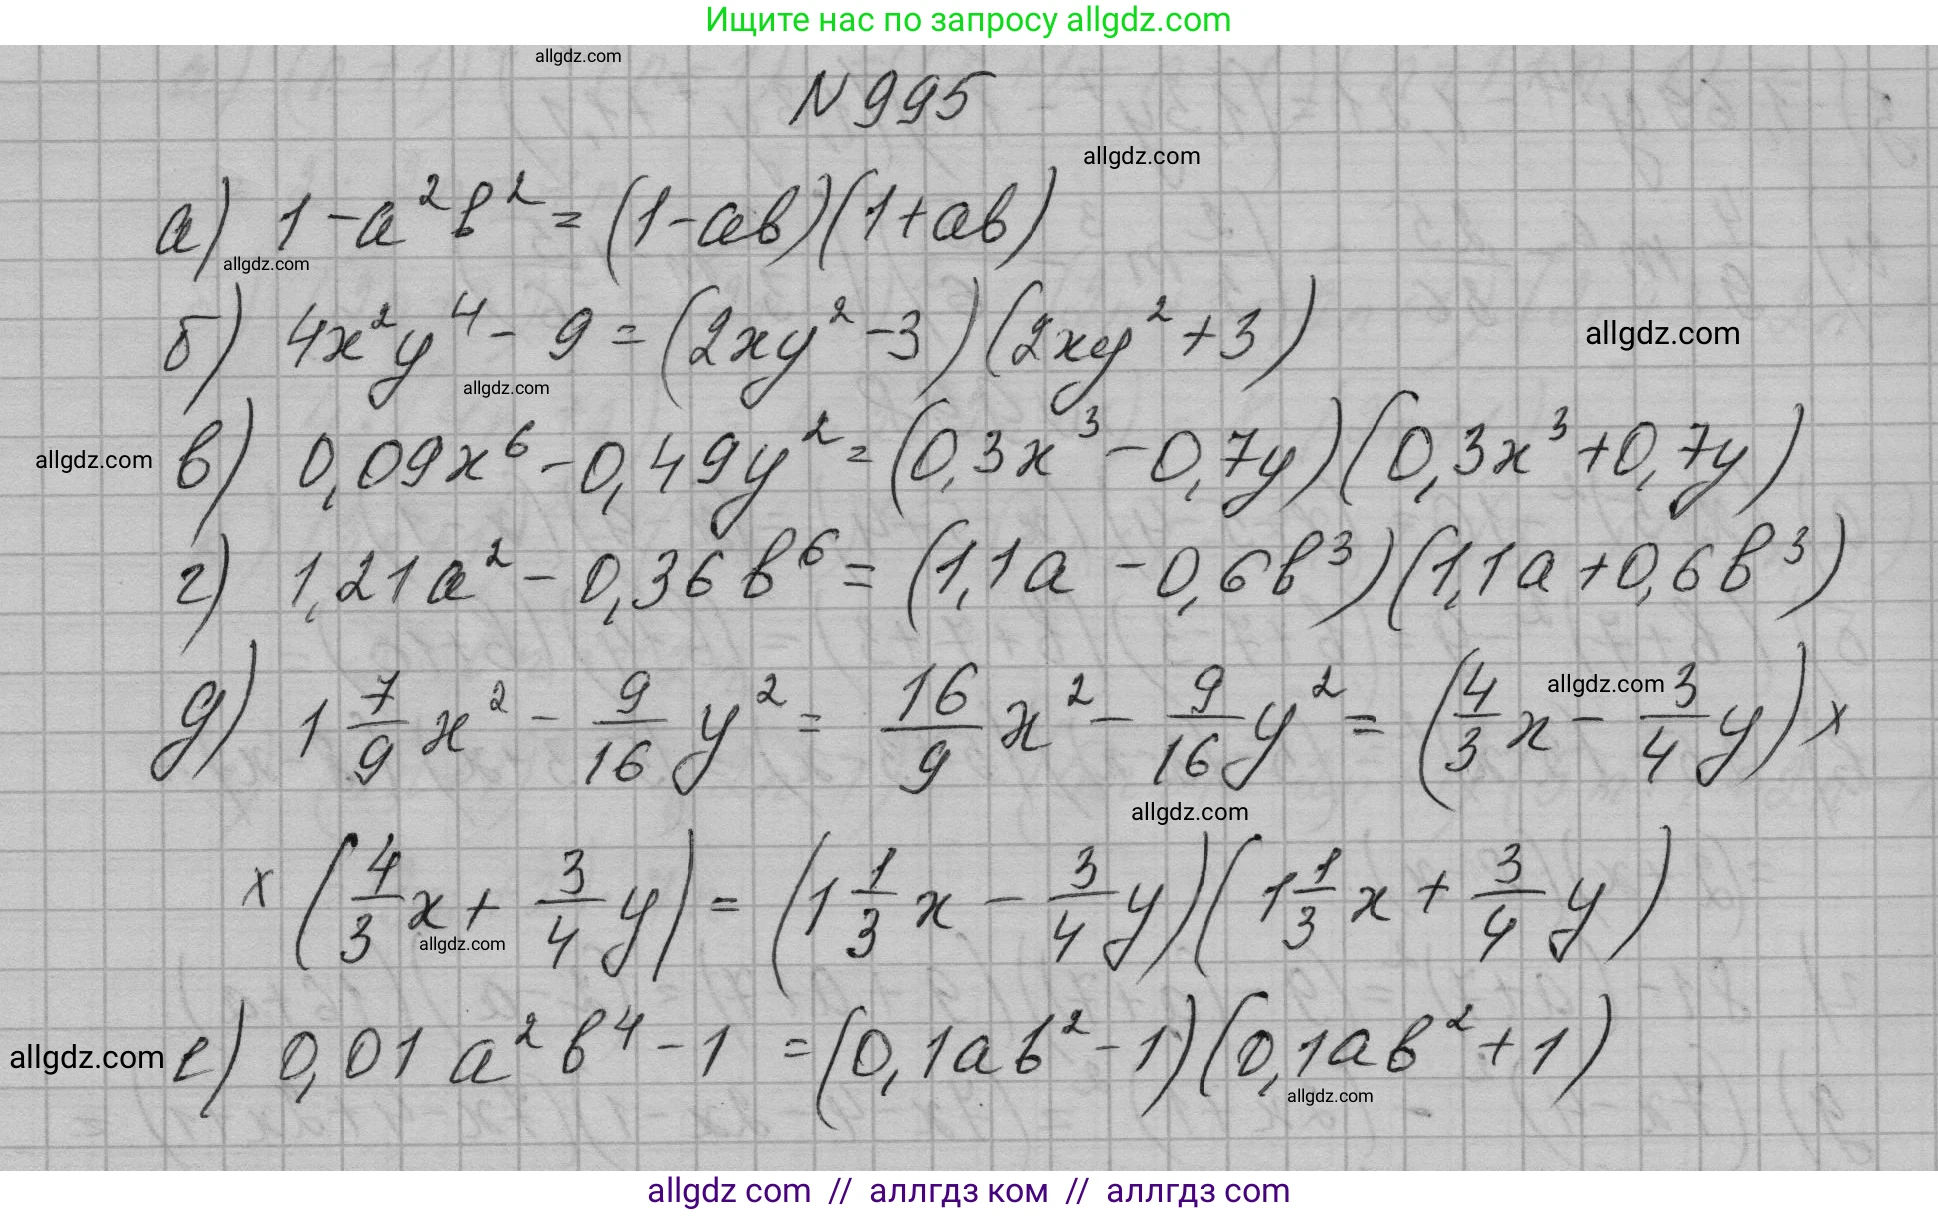 Ищите нас по запросу allgdz.com
allgdz.com
N 995
allgdz.com
а) 1 - a²b² = (1 - ab)(1 + ab)
allgdz.com
б) 4x²y⁴ - 9 = (2xy² - 3)(2xy² + 3)
allgdz.com
allgdz.com
allgdz.com
в) 0,09x⁶ - 0,49y² = (0,3x³ - 0,7y)(0,3x³ + 0,7y)
г) 1,21a² - 0,36b⁶ = (1,1a - 0,6b³)(1,1a + 0,6b³)
д) 1 7/9 x² - 9/16 y² = 16/9 x² - 9/16 y² = (4/3 x - 3/4 y) ×
allgdz.com
allgdz.com
× (4/3 x + 3/4 y) = (1 1/3 x - 3/4 y)(1 1/3 x + 3/4 y)
allgdz.com
allgdz.com
е) 0,01 a²b⁴ - 1 = (0,1ab² - 1)(0,1ab² + 1)
allgdz.com
allgdz com // аллгдз ком // аллгдз com